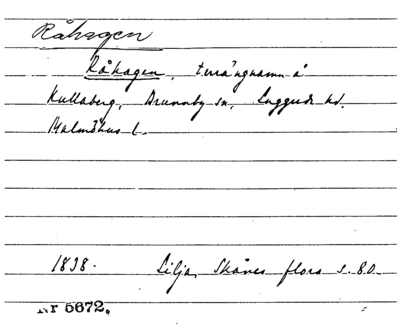 Råhagen
Råhagen, terrängnamn å
Kullaberg, Brunnby sn, Luggude hd.
Malmöhus l.
1838. Lilja, Skånes flora s. 80.
Nr 5672.